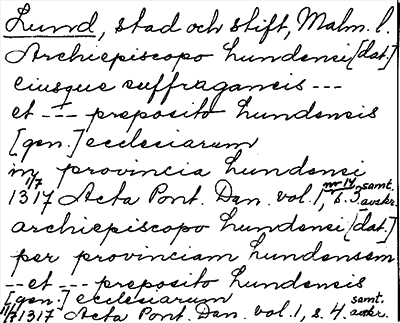 Lund, stad och stift, Malm. l.
Archiepiscopo lundensi [dat.]
eiusque suffraganeis ---
et --- preposito lundensis
[gen.] ecclesiarum
in provincia lundensi
11/7 1317 Acta Pont. Dan. vol. 1, nr 14, s. 3. samt. avskr.
archiepiscopo lundensi [dat.]
per provinciam lundensem
-- et --- preposito lundensis
[gen.] ecclesiarum
11/7 1317 Acta Pont. Dan. vol. 1, s. 4. samt. avskr.